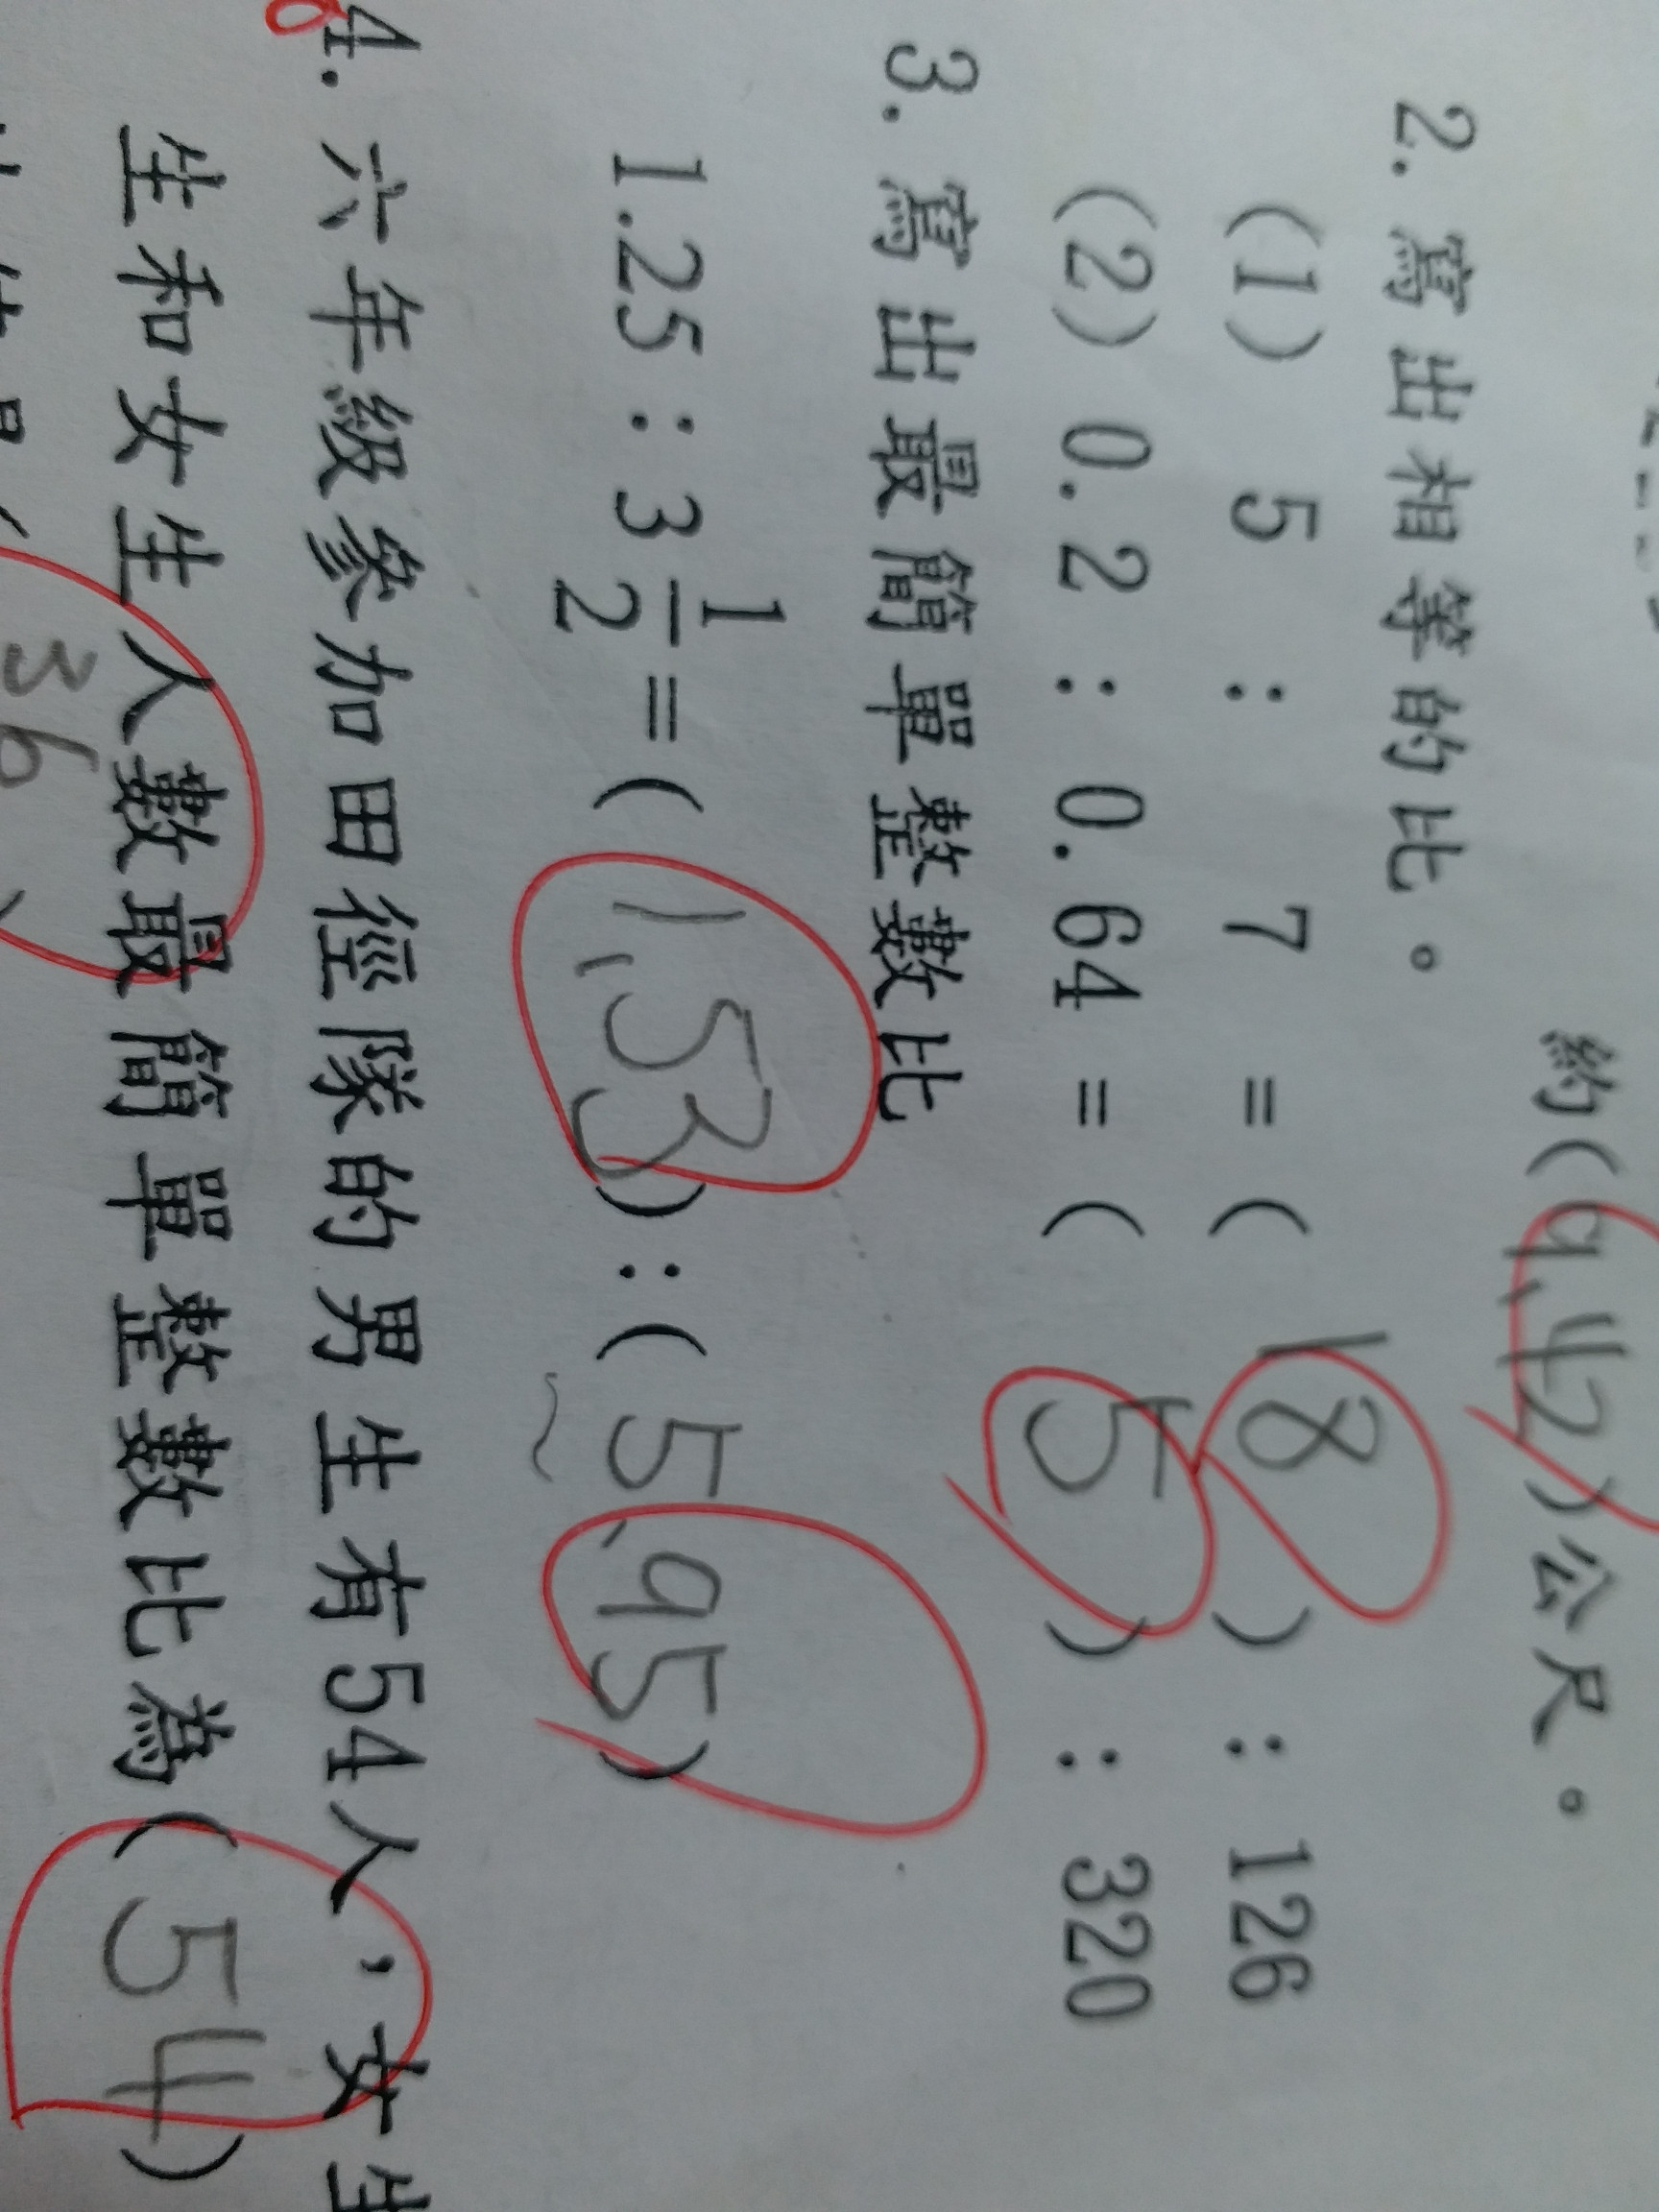 約(9.42)公尺。
2.寫出相等的比。
(1) 5 : 7 = ( 18 ) : 126
(2) 0.2 : 0.64 = ( 5 ) : 320
3.寫出最簡單整數比
1.25 : 3 1/2 = ( 1.53 ) : ( 5.95 )
4.六年級參加田徑隊的男生有54人,女生
生和女生人數最簡單整數比為( 54 )
36